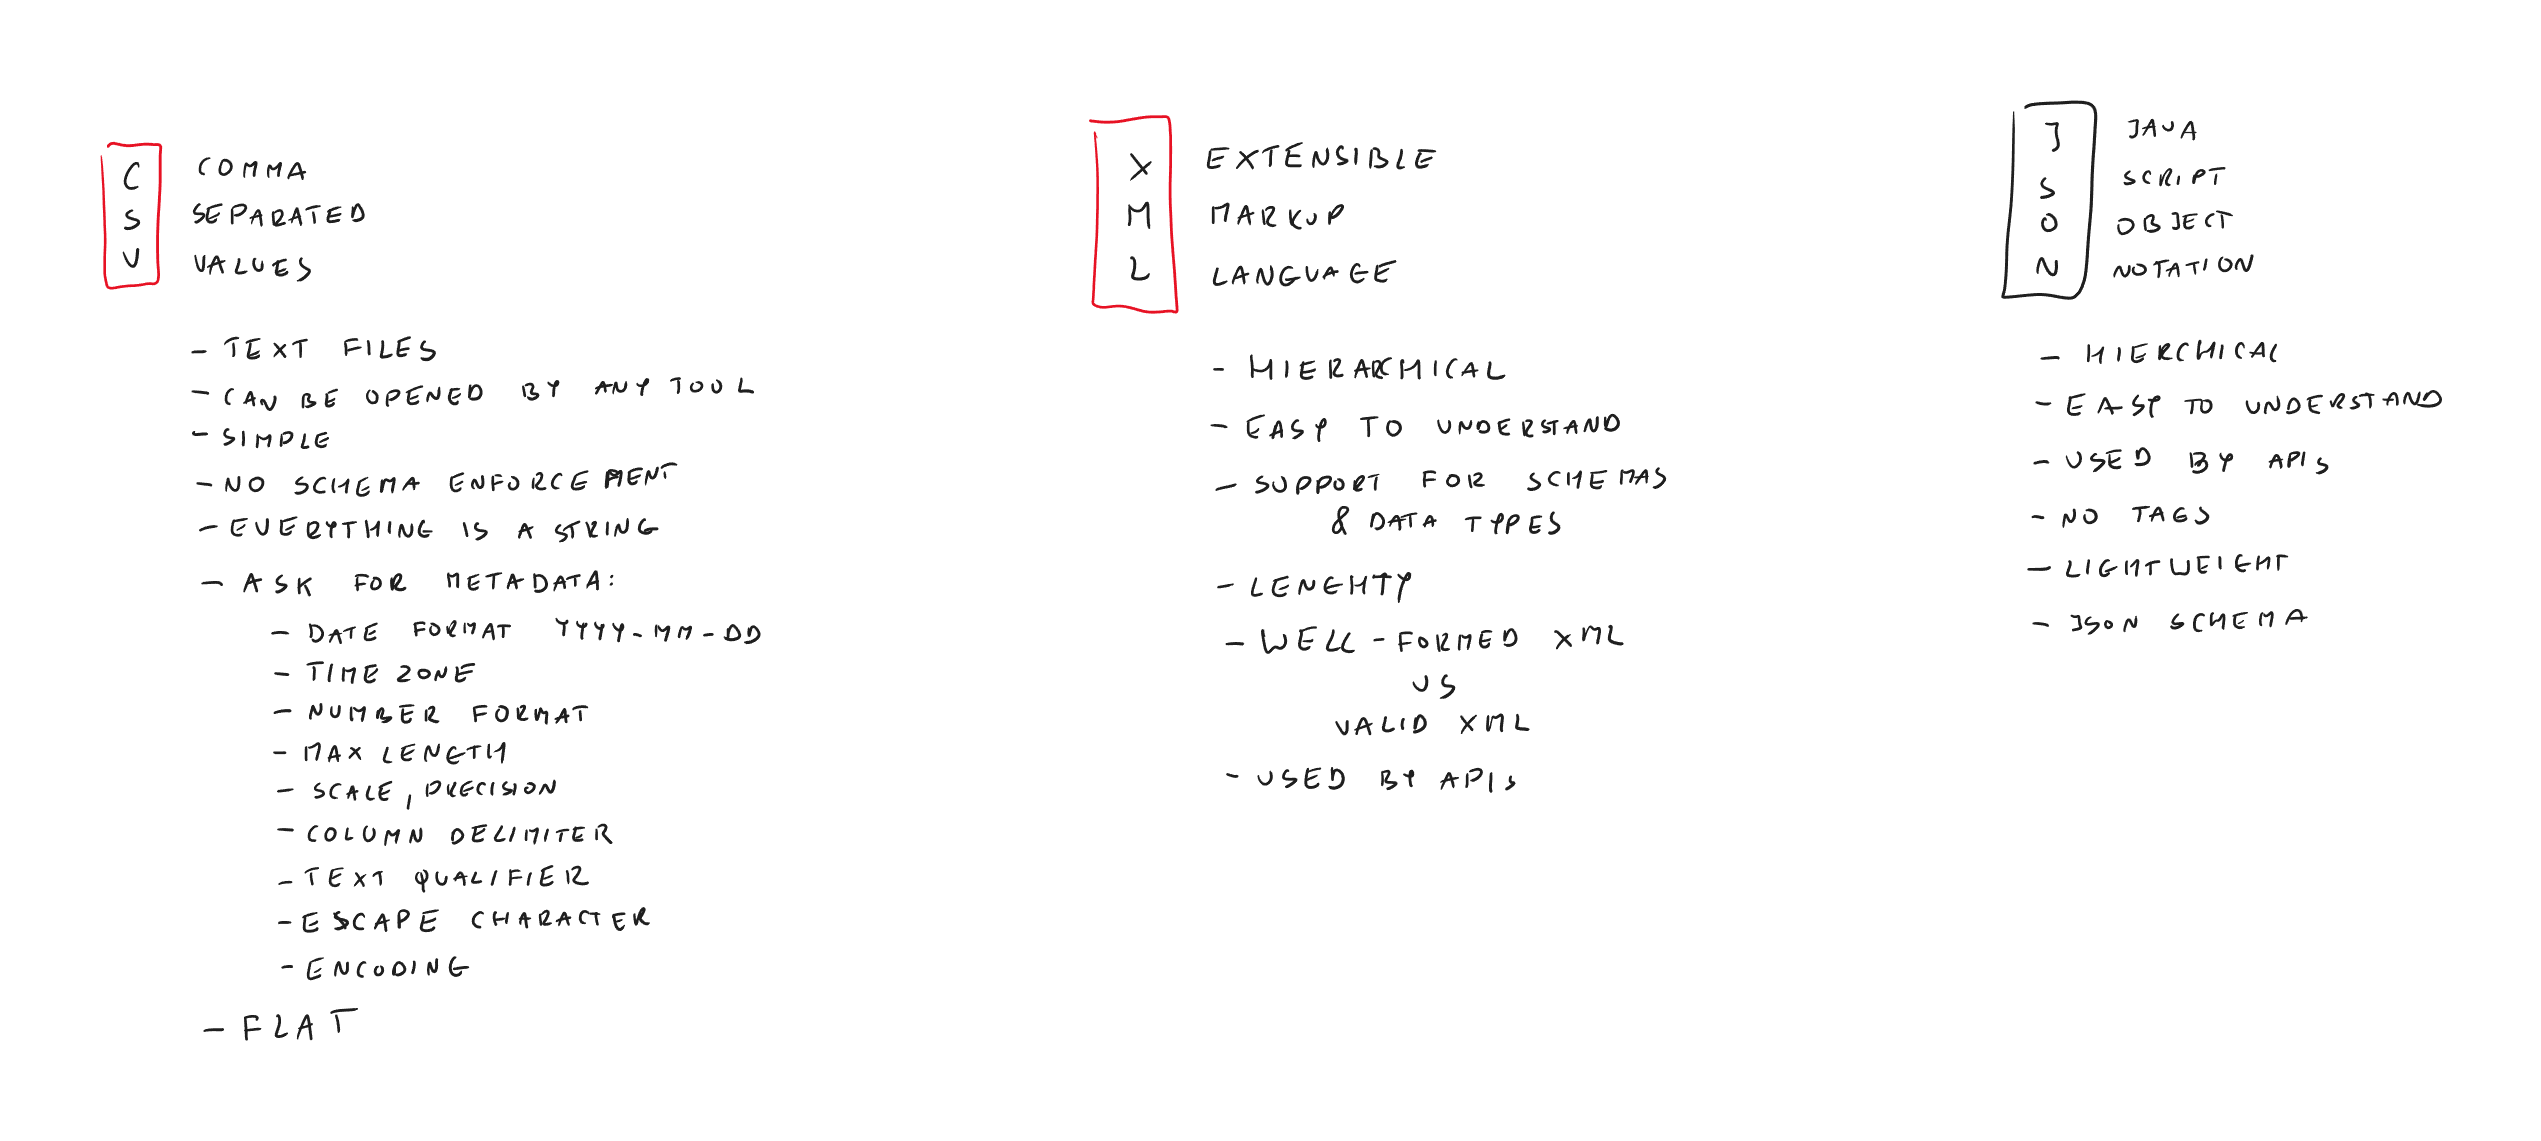 C COMMA
S SEPARATED
V VALUES
- TEXT FILES
- CAN BE OPENED BY ANY TOOL
- SIMPLE
- NO SCHEMA ENFORCEMENT
- EVERYTHING IS A STRING
- ASK FOR METADATA:
- DATE FORMAT YYYY-MM-DD
- TIME ZONE
- NUMBER FORMAT
- MAX LENGTH
- SCALE, PRECISION
- COLUMN DELIMITER
- TEXT QUALIFIER
- ESCAPE CHARACTER
- ENCODING
- FLAT
X EXTENSIBLE
M MARKUP
L LANGUAGE
- HIERARCHICAL
- EASY TO UNDERSTAND
- SUPPORT FOR SCHEMAS
& DATA TYPES
- LENGHTY
- WELL-FORMED XML
VS
VALID XML
- USED BY APIs
J JAVA
S SCRIPT
O OBJECT
N NOTATION
- HIERCHICAL
- EASY TO UNDERSTAND
- USED BY APIs
- NO TAGS
- LIGHTWEIGHT
- JSON SCHEMA